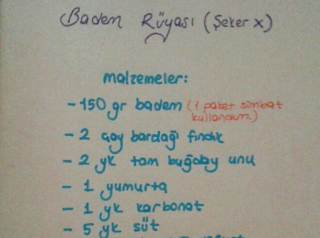 Badem Rüyası (Şeker x)
malzemeler:
- 150 gr badem (1 paket simbat
kullandım)
- 2 çay bardağı fındık
- 2 yk tam buğday unu
- 1 yumurta
- 1 yk karbonat
- 5 yk süt